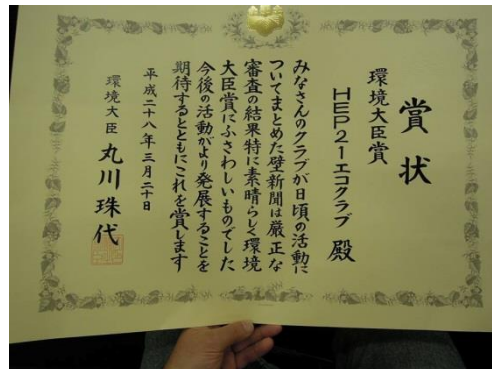 賞状
環境大臣賞
HEP21エコクラブ 殿
みなさんのクラブが日頃の活動に
ついてまとめた壁新聞は厳正な
審査の結果特に素晴らしく環境
大臣賞にふさわしいものでした
今後の活動がより発展することを
期待するとともにこれを賞します
平成二十八年三月二十日
環境大臣 丸川珠代